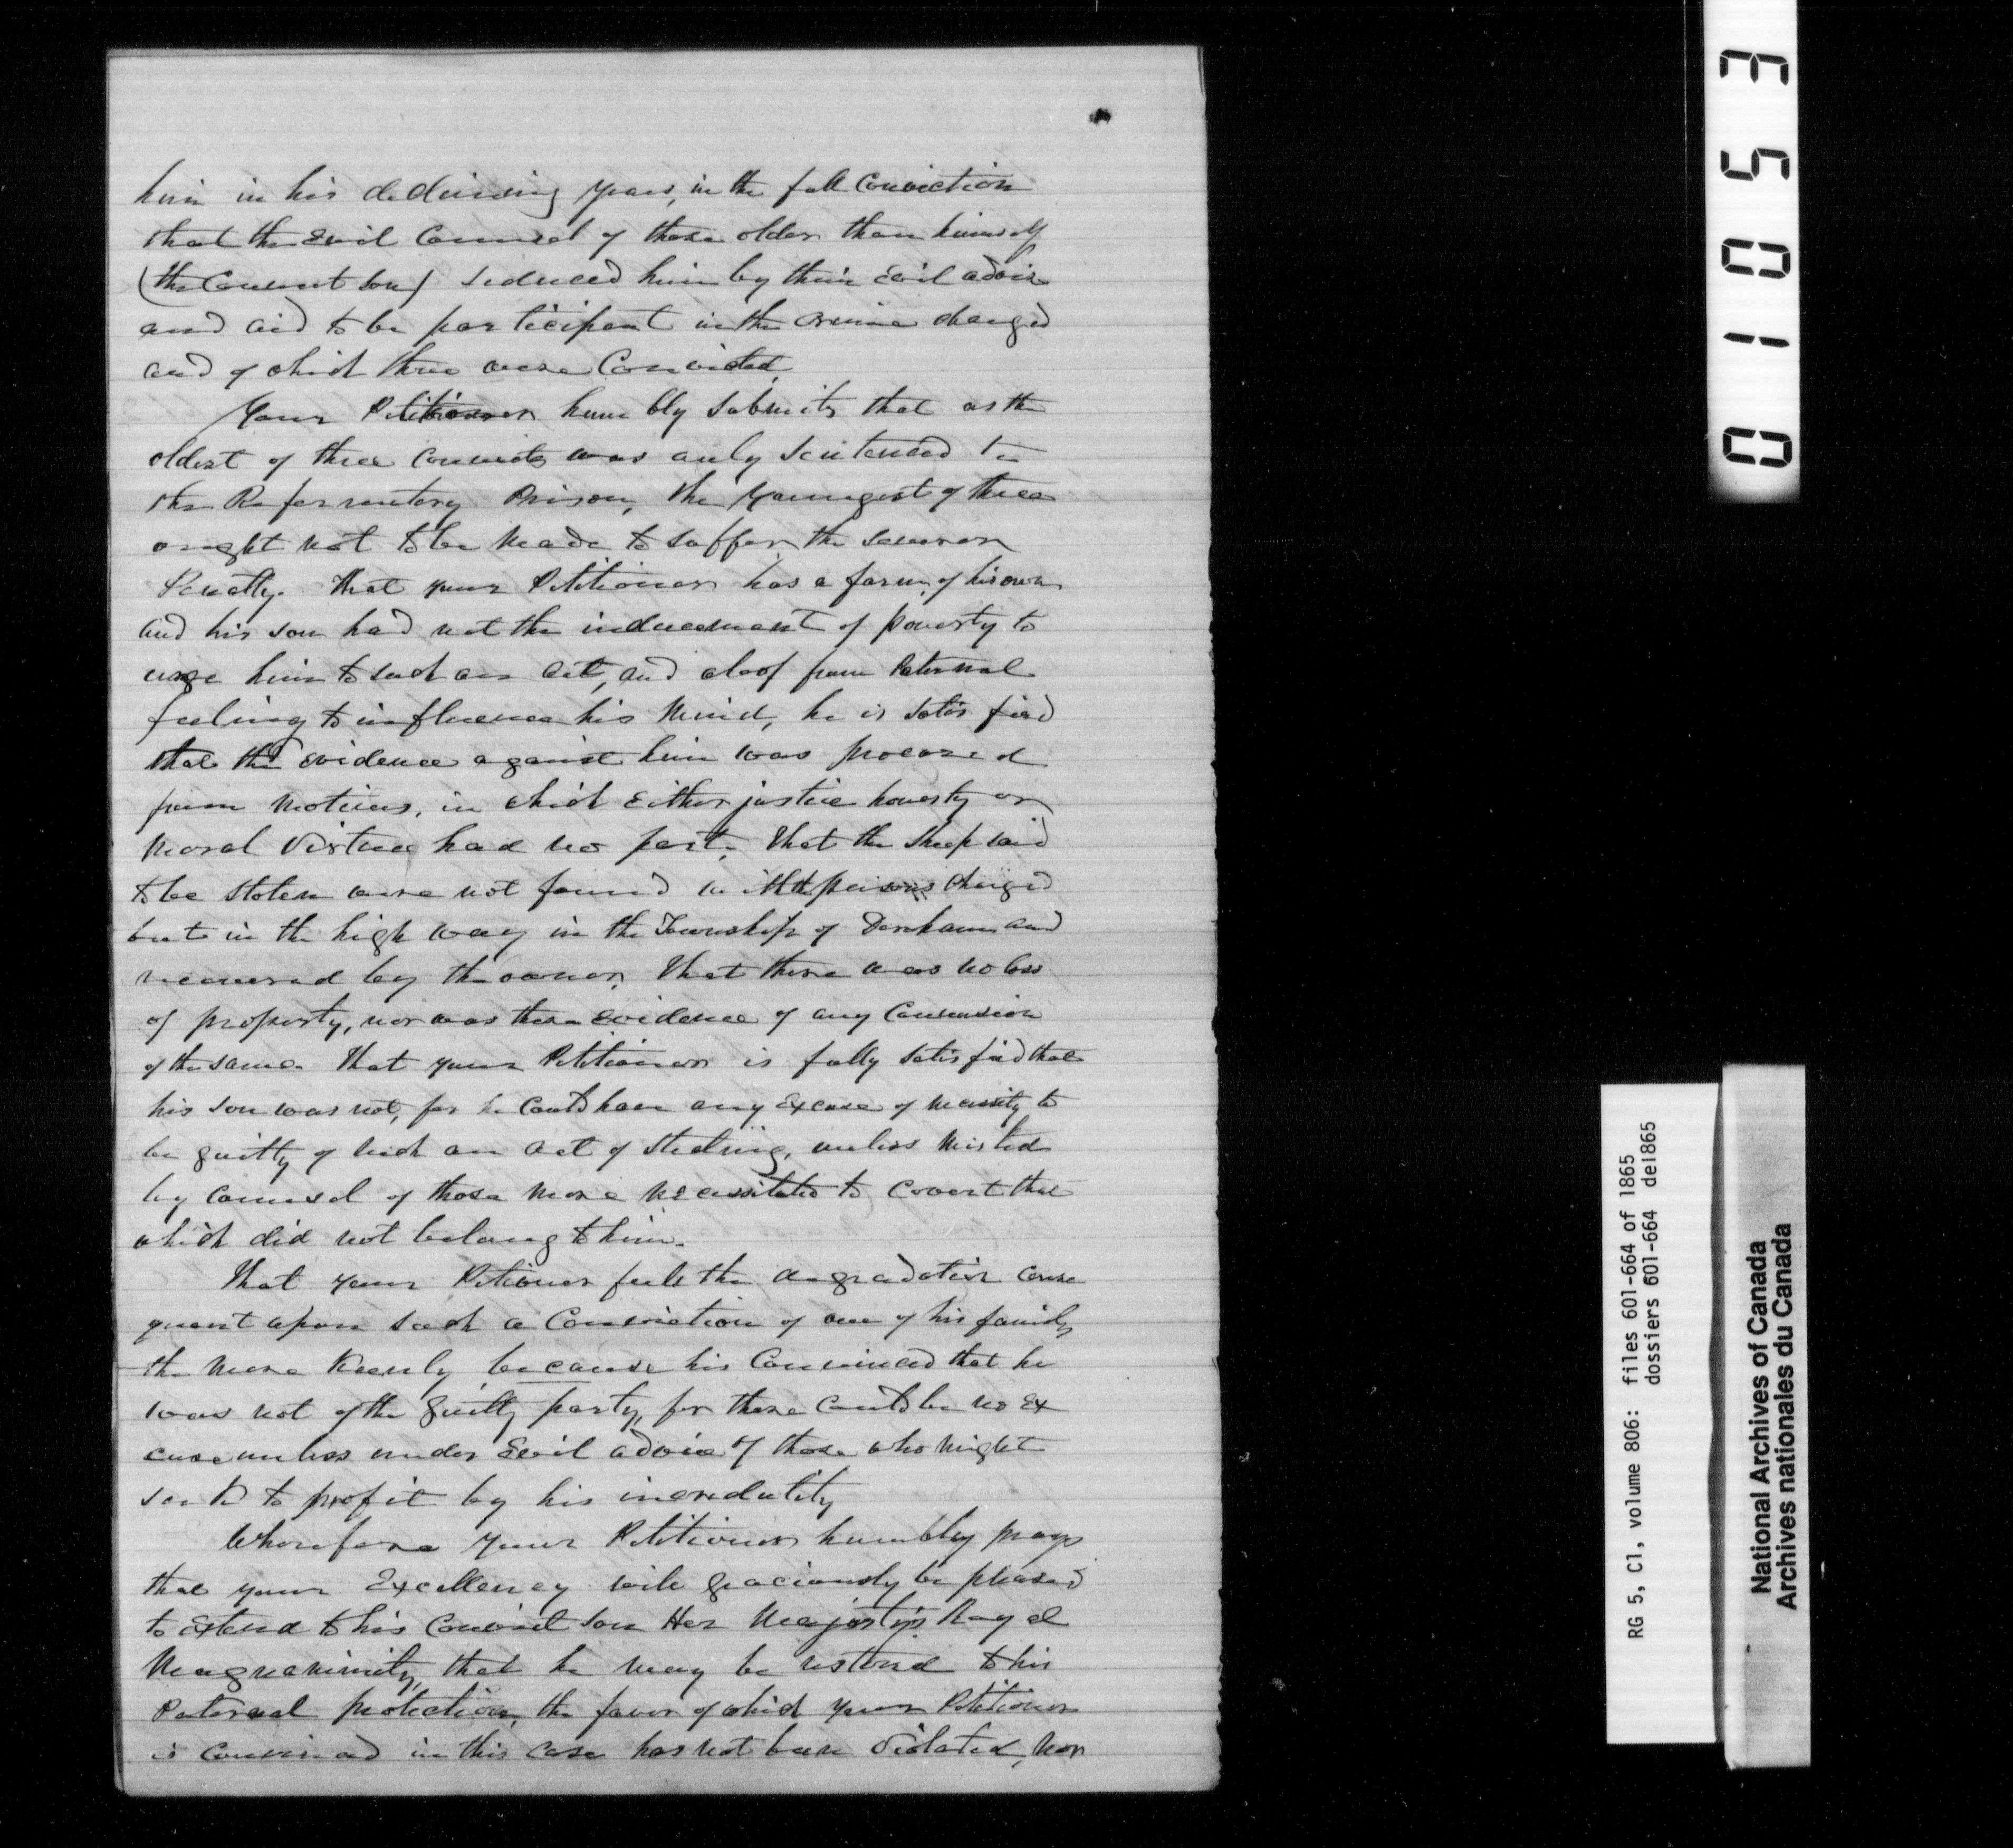 him in his declining years, in the full Conviction
that the Evil Counsel of those older than himself
(the Convict Son) seduced him by their Evil advice
and aid to be participant in the crime charged
and of which three were Convicted.
Your Petitioner humbly submits that as the
oldest of three Convicts was only sentenced to
the Reformatory Prison, the youngest of three
ought not to be made to suffer the severer
Penalty. That your Petitioner has a farm of his own
and his son had not the inducement of poverty to
urge him to such an act, and aloof from Paternal
feeling to influence his mind, he is satisfied
that the evidence against him was procured
from motives, in which Either justice honesty or
moral Virtue had no part, That the sheep said
to be stolen were not found with the persons charged
but in the high way in the Township of Dereham and
recovered by the owner, That there was no loss
of property, nor was there Evidence of any Conversion
of the same. That your Petitioner is fully satisfied that
his son was not, for he could have any Excuse of necessity to
be guilty of such an act of stealing, unless misled
by Counsel of those more necessitated to Covert that
which did not belong to him.
That your Petioner feels the degradation conse
quent upon such a Conviction of one of his family,
the more Keenly because his Convinced that he
was not of the guilty party, for there could be no Ex
cuse unless under Evil advice of those who might
seek to profit by his incredulity
Wherefore your Petitioner humbly prays
that your Excellency will graciously be pleased
to Extend to his Convict son Her Majesty's Royal
Magnanimity, that he may be restored to his
Paternal protection, the favor of which your Petitioner
is convinced in this case has not been Violated, nor
01053
RG 5, C1, volume 806: files 601-664 of 1865
dossiers 601-664 de1865
National Archives of Canada
Archives nationales du Canada